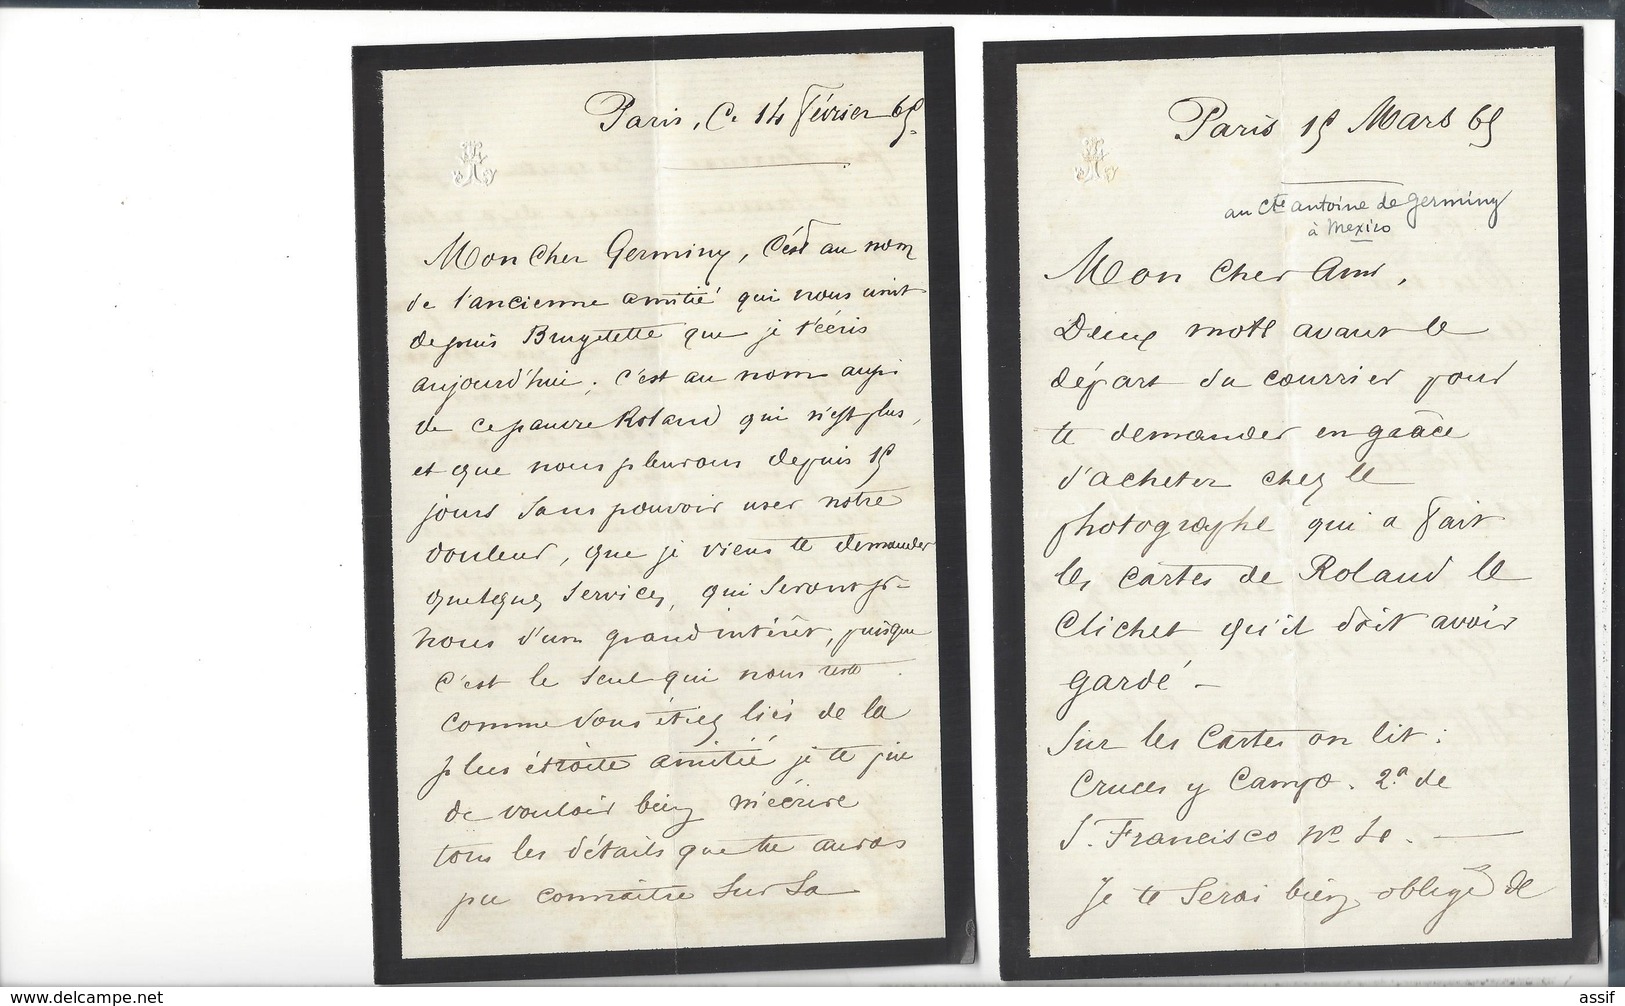 Paris, Ce 14 février 65.
Mon cher Germiny, C'est au nom
de l'ancienne amitié qui nous unit
depuis Brugelette que je t'écris
aujourd'hui ; c'est au nom aussi
de ce pauvre Roland qui n'est plus,
et que nous pleurons depuis 15
jours sans pouvoir user notre
douleur, que je viens te demander
quelques services, qui seront pr-
nous d'un grand intérêt, puisque
c'est le seul qui nous reste.
comme vous étiez liés de la
plus étroite amitié je te prie
de vouloir bien m'écrire
tous les détails que tu auras
pu connaître sur sa
Paris 15 Mars 65
au Cte antoine de germiny
à Mexico
Mon cher Ami,
Deux mots avant le
départ du courrier pour
te demander en grâce
d'acheter chez le
photographe qui a fait
les cartes de Roland le
Clichet qu'il doit avoir
gardé –
Sur les Cartes on lit :
Cruces y Campo. 2.a de
S. Francisco no
Je te serai bien obligé de
assif
www.delcampe.net